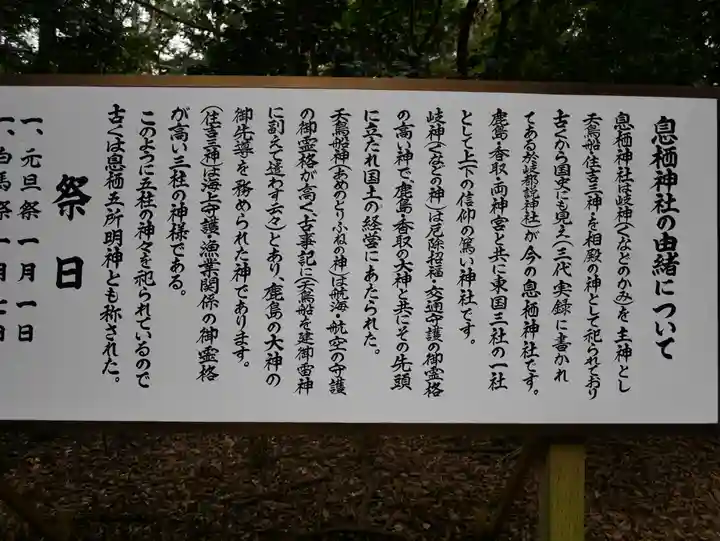 息栖神社の由緒について
息栖神社は岐神(くなどのかみ)を主神とし
天鳥船・住吉三神・を相殿の神として祀られており
古くから国史にも見え(三代実録に書かれ
てある於岐都説神社)が今の息栖神社です。
鹿島・香取・両神宮と共に東国三社の一社
として上下の信仰の篤い神社です。
岐神(くなどの神)は厄除招福・交通守護の御霊格
の高い神で、鹿島・香取の大神と共にその先頭
に立たれ国土の経営にあたられた。
天鳥船神(あめのとりふねの神)は航海・航空の守護
の御霊格が高く、古事記に(天鳥船を建御雷神
に副えて遣わす云々)とあり、鹿島の大神の
御先導を務められた神であります。
(住吉三神は海上守護・漁業関係の御霊格
が高い三柱の神様である。
このように五柱の神々を祀られているので
古くは息栖五所明神とも称された。
祭日
一、元旦祭 一月一日
一、白馬祭 一月七日